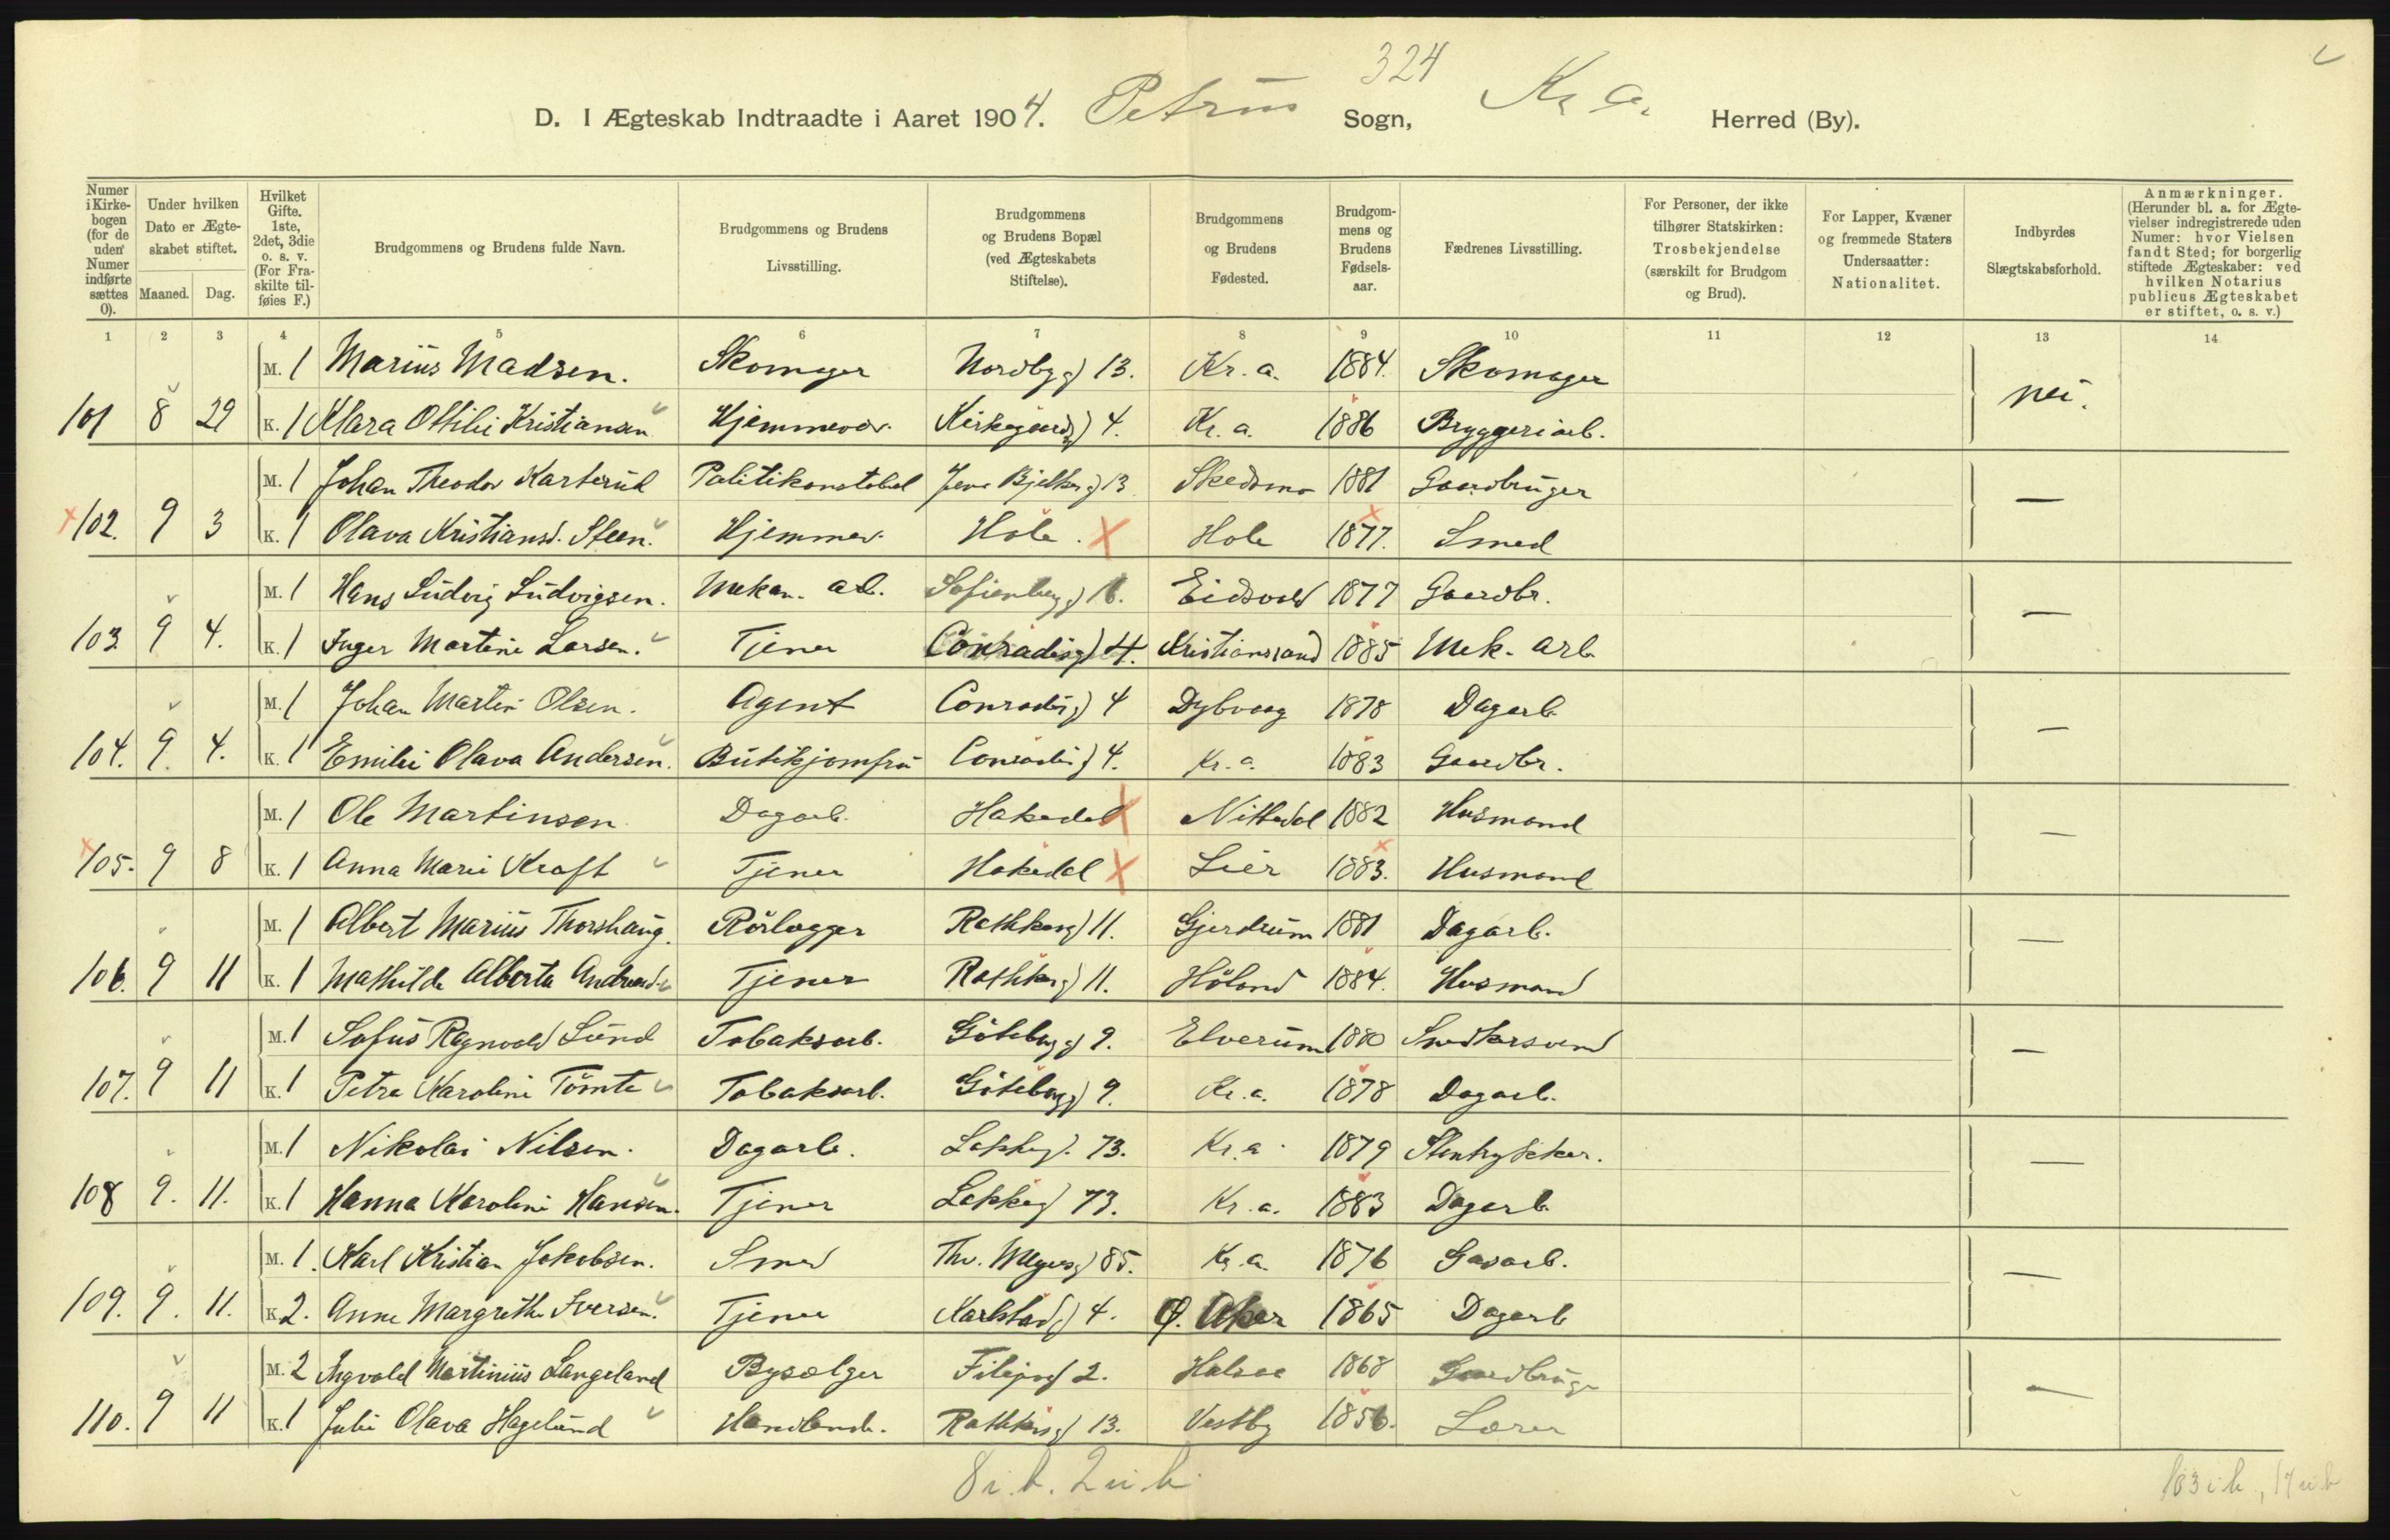 324
D. I Ægteskab Indtraadte i Aaret 1904. Petrus Sogn, Kr. a. Herred (By).
Numer i Kirke-bogen (for de uden Numer indførte sættes 0).
Under hvilken Dato er Ægte-skabet stiftet.
Maaned. Dag.
Hvilket Gifte. 1ste, 2det, 3die o. s. v. (For Fra-skilte til-føies F.)
Brudgommens og Brudens fulde Navn.
Brudgommens og Brudens Livsstilling.
Brudgommens og Brudens Bopæl (ved Ægteskabets Stiftelse).
Brudgommens og Brudens Fødested.
Brudgom-mens og Brudens Fødsels-aar.
Fædrenes Livsstilling.
For Personer, der ikke tilhører Statskirken: Trosbekjendelse (særskilt for Brudgom og Brud).
For Lapper, Kvæner og fremmede Staters Undersaatter: Nationalitet.
Indbyrdes Slægtskabsforhold.
Anmærkninger. (Herunder bl. a. for Ægte-vielser indregistrerede uden Numer: hvor Vielsen fandt Sted; for borgerlig stiftede Ægteskaber: ved hvilken Notarius publicus Ægteskabet er stiftet, o. s. v.)
1 2 3 4 5 6 7 8 9 10 11 12 13 14
M. 1 Marius Madsen. Skomager Nordbyg 13. Kr. a. 1884. Skomager
101 8 29 K. 1 Klara Ottilie Kristiansen Hjemmevær. Kirkegaardsg 4. Kr. a. 1886 Bryggeriarb. nei.
M. 1 Johan Theodor Karterud Politikonstabel Jens Bjelkes g 13 Skedsmo 1881 Gaardbruger
102. 9 3 K. 1 Olava Kristiansd. Steen. Hjemmev. Hole. Hole 1877. Smed —
M. 1 Hans Ludvig Ludvigsen. Mekan. arb. Sofienbergg 16. Eidsvold 1877 Gaardbr.
103. 9 4. K. 1 Inger Martine Larsen. Tjener Conradisg 4. Kristianssand 1885 Mek. arb. —
M. 1 Johan Martin Olsen. Agent Conradisg 4 Dybvaag 1878 Dagarb.
104. 9. 4. K. 1 Emilie Olava Andersen. Butikjomfru Conradisg 4. Kr. a. 1883 Gaardbr. —
M. 1 Ole Martinsen Dagarb. Hakedal Nittedal 1882 Husmand
105. 9 8 K. 1 Anna Marie Kraft Tjener Hakedal Lier 1883. Husmand —
M. 1 Albert Marius Thorshaug. Rörlægger Rathkesg 11. Gjerdrum 1881 Dagarb.
106. 9 11 K. 1 Mathilde Alberta Andreasd. Tjener Rathkesg 11. Höland 1884. Husmand —
M. 1 Sofus Ragnvald Lund Tobaksarb. Göteborgg 9. Elverum 1880 Snedkersvend
107. 9 11 K. 1 Petra Karoline Tömte Tobaksarb. Göteborgg 9. Kr. a. 1878 Dagarb. —
M. 1 Nikolai Nilsen. Dagarb. Lakkeg. 73. Kr. a. 1879 Stentrykker.
108 9. 11. K. 1 Hanna Karoline Hansen. Tjener Lakkeg 73. Kr. a. 1883 Dagarb. —
M. 1. Karl Kristian Jakobsen. Smed Thv. Meyersg 85. Kr. a. 1876 Gasarb.
109. 9. 11. K. 2. Anne Margrethe Iversen. Tjener Karlstadg 4. Ø. Aker 1865 Dagarb —
M. 2 Ingvald Martinius Langeland Bysælger Filipsg 2. Halsaa 1868 Gaardbruger
110. 9 11 K. 1 Julie Olava Hagelund Handlende. Rathkesg 13. Vestby 1856. Lærer —
8 i. b. 2 u. b.
163 i b, 17 u b